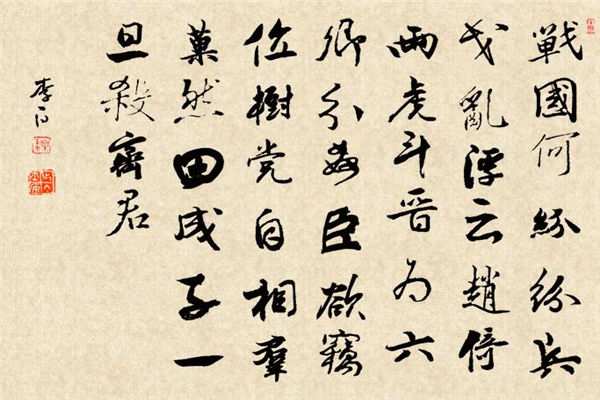 戰國何紛紛兵
戈亂浮云趙倚
兩虎斗晉為六
卿分姦臣欲竊
位樹党自相羣
菓然田成子一
旦殺齊君
李白